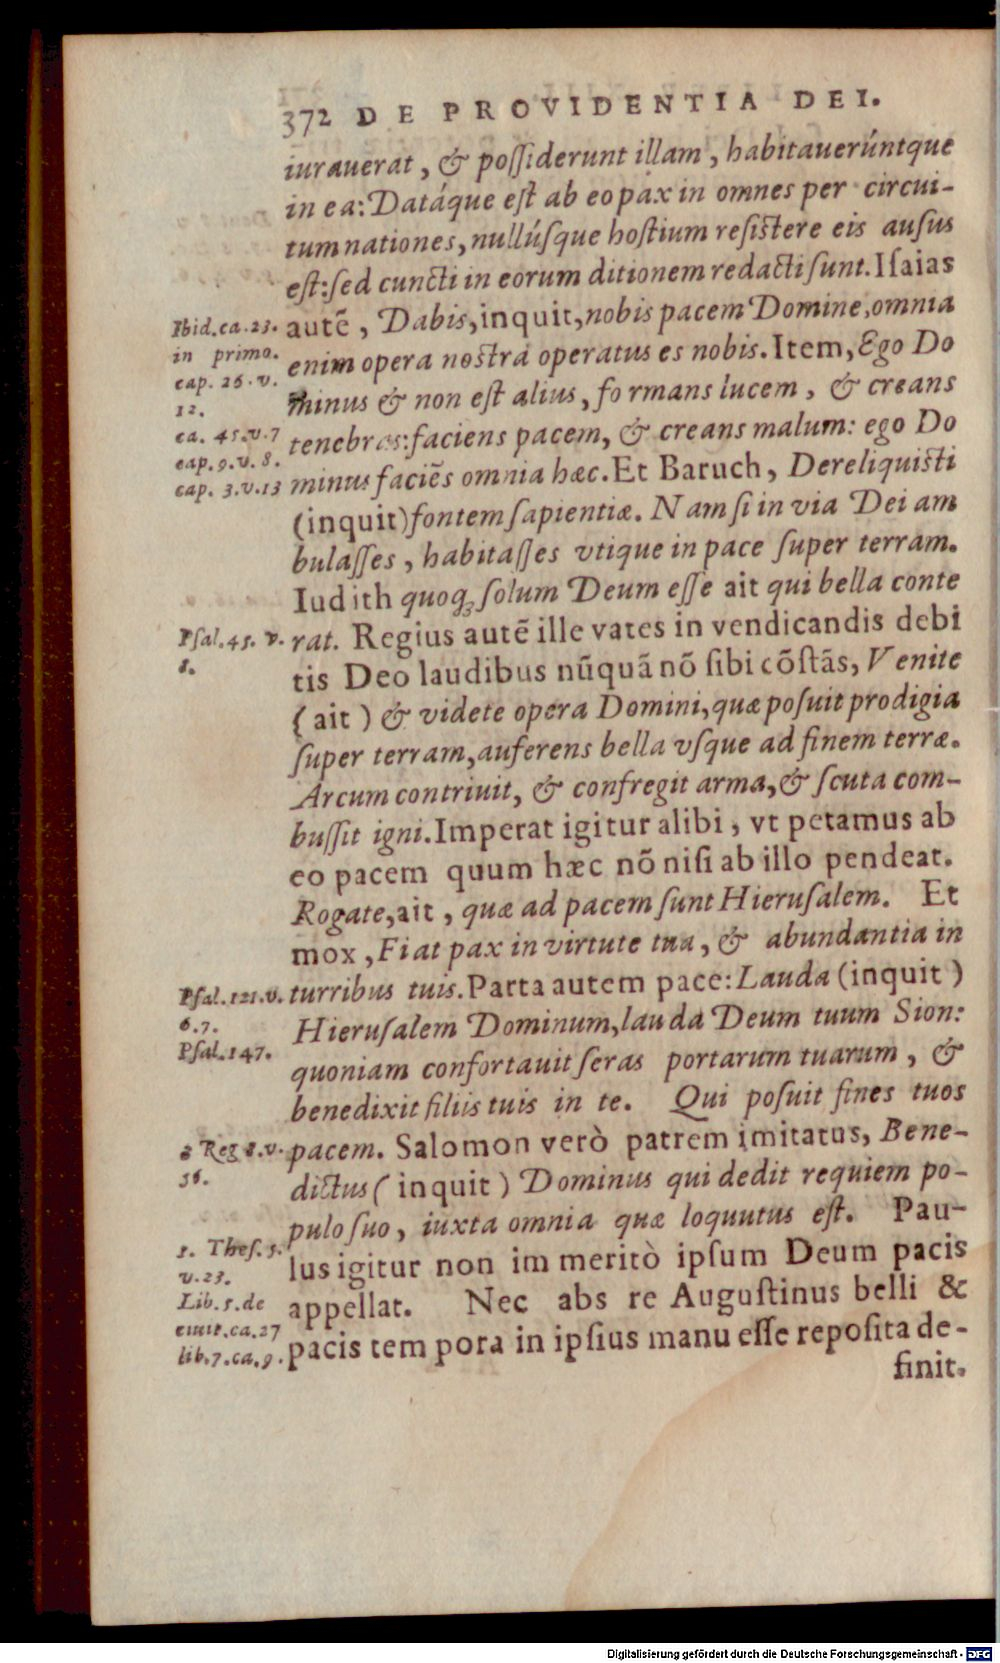 372 DE PROVIDENTIA DEI.
iurauerat, & poſſiderunt illam, habitauerúntque
in ea: Datáque eſt ab eo pax in omnes per circui-
tum nationes, nullúſque hoſtium reſiſtere eis auſus
eſt: ſed cuncti in eorum ditionem redacti ſunt. Iſaias
autẽ, Dabis, inquit, nobis pacem Domine, omnia
enim opera noſtra operatus es nobis. Item, Ego Do
minus & non eſt alius, formans lucem, & creans
tenebras: faciens pacem, & creans malum: ego Do
minus faciẽs omnia hæc. Et Baruch, Dereliquiſti
(inquit) fontem ſapientiæ. Nam ſi in via Dei am
bulaſſes, habitaſſes vtique in pace ſuper terram.
Iudith quoqꝫ ſolum Deum eſſe ait qui bella conte
rat. Regius autẽ ille vates in vendicandis debi
tis Deo laudibus nũquã nõ ſibi cõſtãs, Venite
(ait) & videte opera Domini, quæ poſuit prodigia
ſuper terram, auferens bella vſque ad finem terræ.
Arcum contriuit, & confregit arma, & ſcuta com-
buſſit igni. Imperat igitur alibi, vt petamus ab
eo pacem quum hæc nõ niſi ab illo pendeat.
Rogate, ait, quæ ad pacem ſunt Hieruſalem. Et
mox, Fiat pax in virtute tua, & abundantia in
turribus tuis. Parta autem pace: Lauda (inquit)
Hieruſalem Dominum, lauda Deum tuum Sion:
quoniam confortauit ſeras portarum tuarum, &
benedixit filiis tuis in te. Qui poſuit fines tuos
pacem. Salomon verò patrem imitatus, Bene-
dictus (inquit) Dominus qui dedit requiem po-
pulo ſuo, iuxta omnia quæ loquutus eſt. Pau-
lus igitur non immeritò ipſum Deum pacis
appellat. Nec abs re Auguſtinus belli &
pacis tempora in ipſius manu eſſe repoſita de-
finit.
Ibid. ca. 23.
in primo.
cap. 26. v.
12.
ca. 45. v. 7
cap. 9. v. 8.
cap. 3. v. 13
Pſal. 45. v.
8.
Pſal. 121. v.
6. 7.
Pſal. 147.
3 Reg 8. v.
56.
1. Theſ. 5.
v. 23.
Lib. 5. de
ciuit. ca. 27
lib. 7. ca. 9.
Digitalisierung gefördert durch die Deutsche Forschungsgemeinschaft - DFG